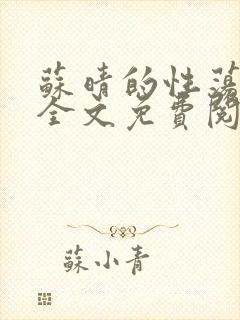 蘇晴的性蕩
全文免費閱
蘇小青